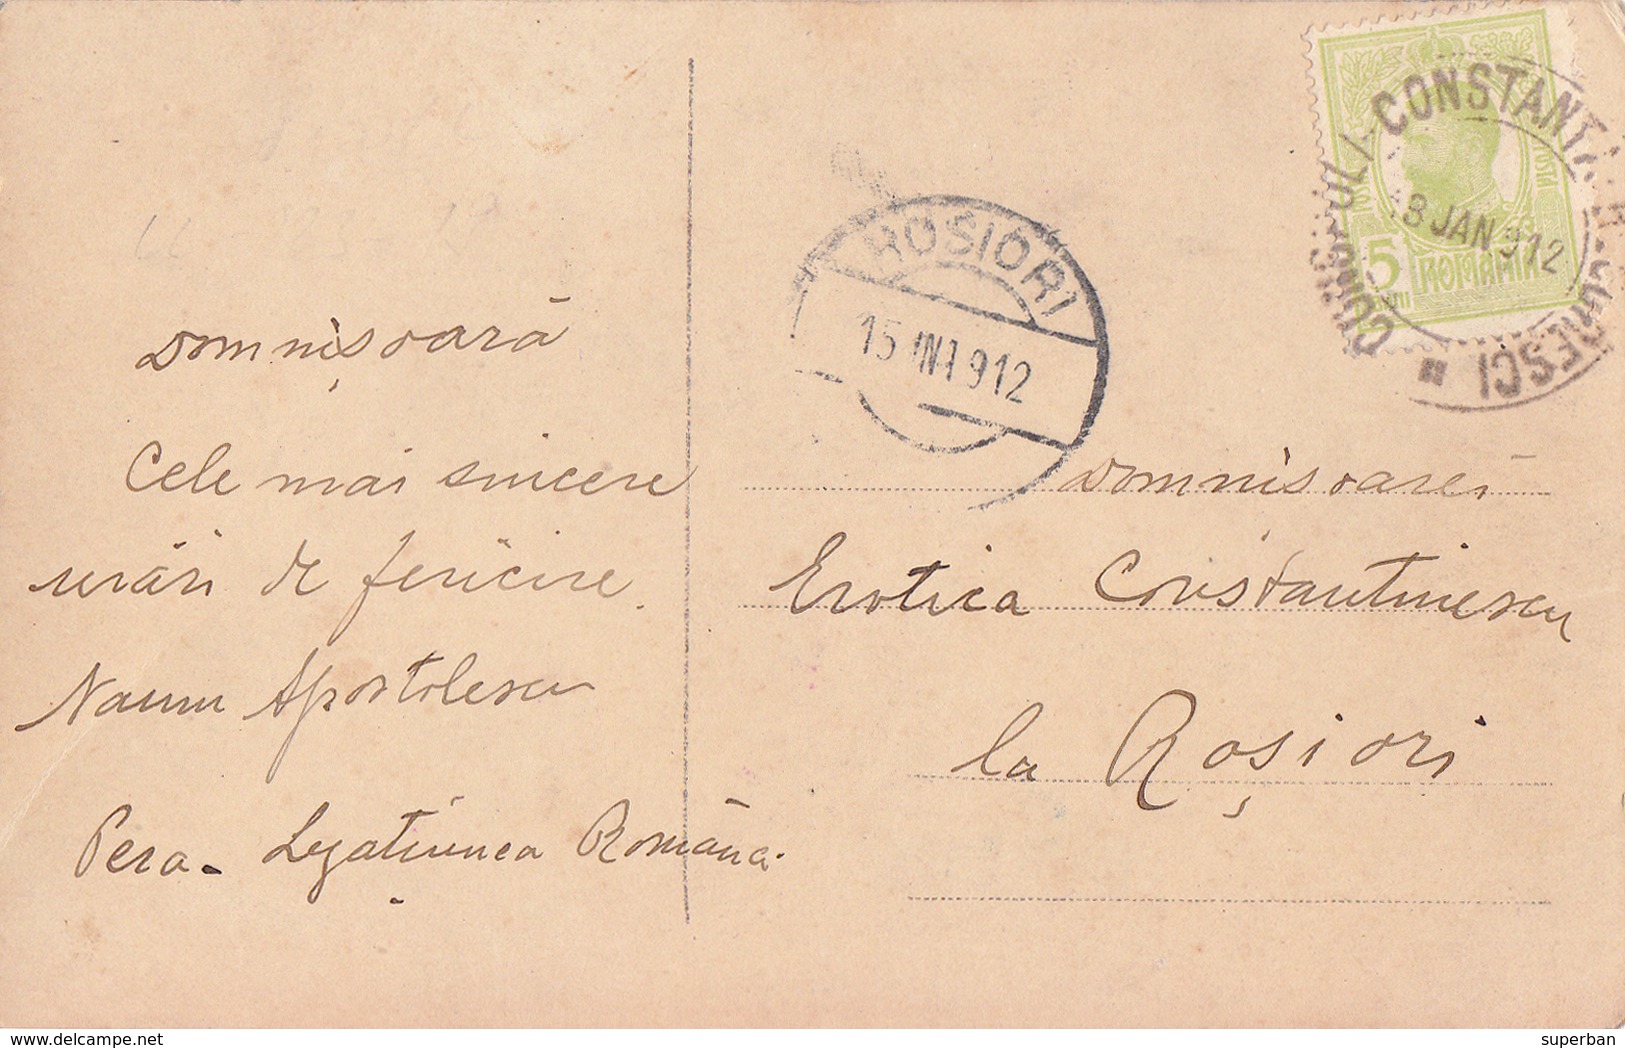 Domnișoară
Cele mai sincere
urări de fericire.
Naum Apostolescu
Pera - Legațiunea Română.
ROSIORI
15 IN 912
5
ROMANIA
CONSTANȚA
JAN 912
Domnișoarei
Erotica Constantinescu
la Roșiori
delcampe.net
superban